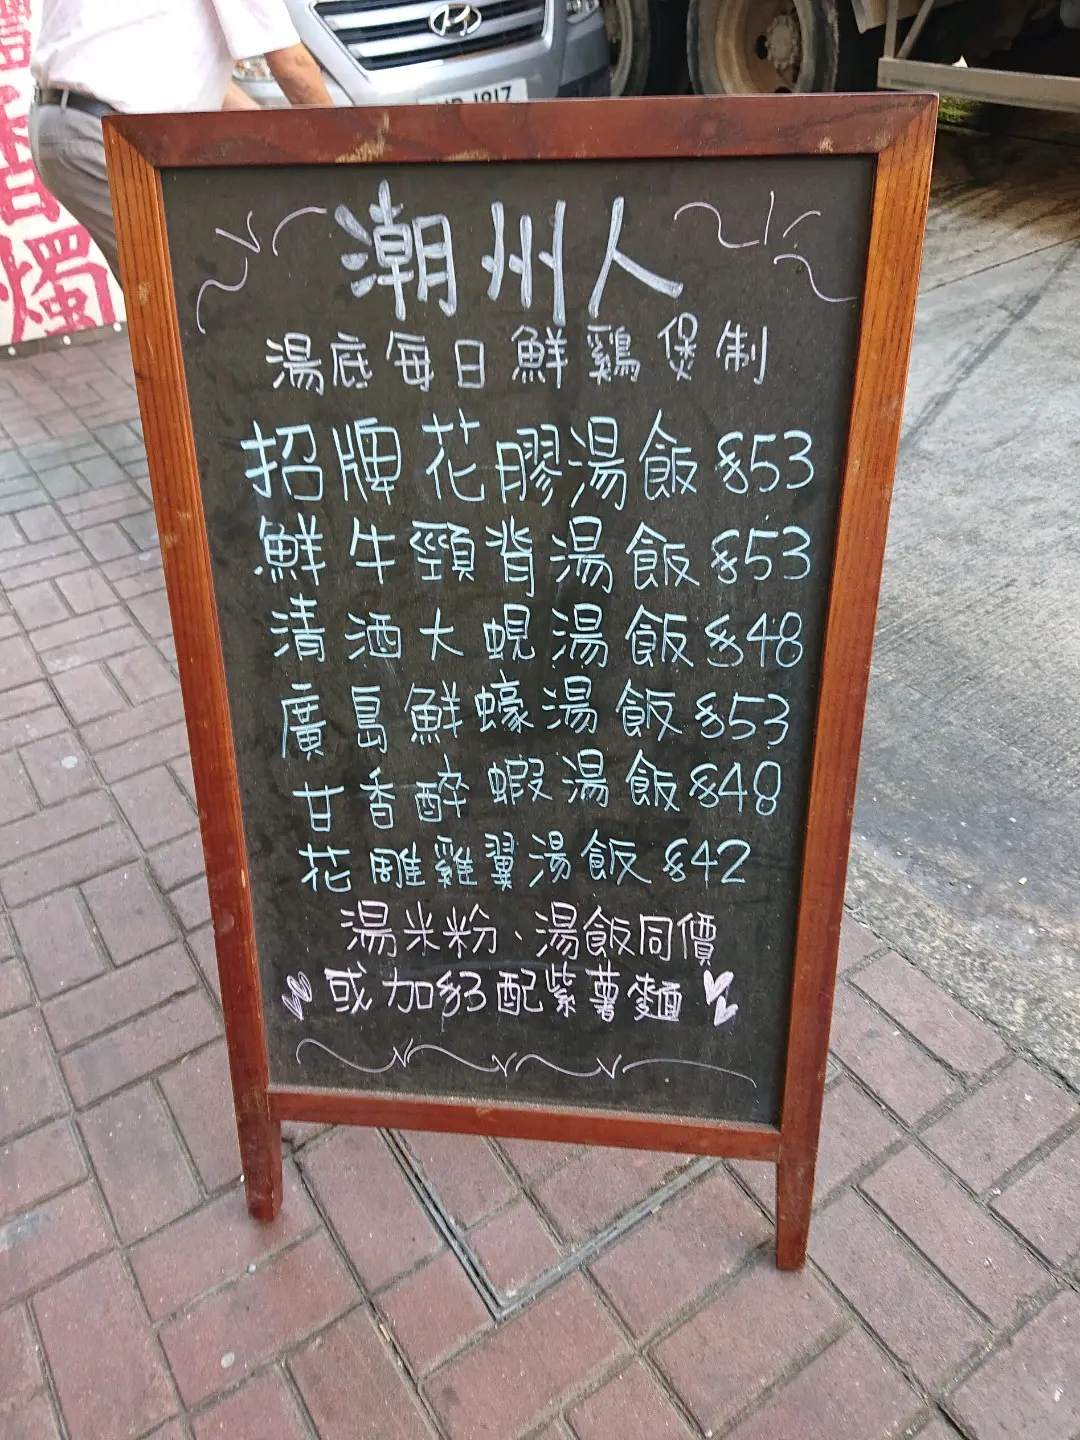 潮州人
湯底每日鮮鷄煲制
招牌花膠湯飯$53
鮮牛頸背湯飯$53
清酒大蜆湯飯$48
廣島鮮蠔湯飯$53
甘香醉蝦湯飯$48
花雕雞翼湯飯$42
湯米粉、湯飯同價
或加$3配紫薯麵
香
燭
1817